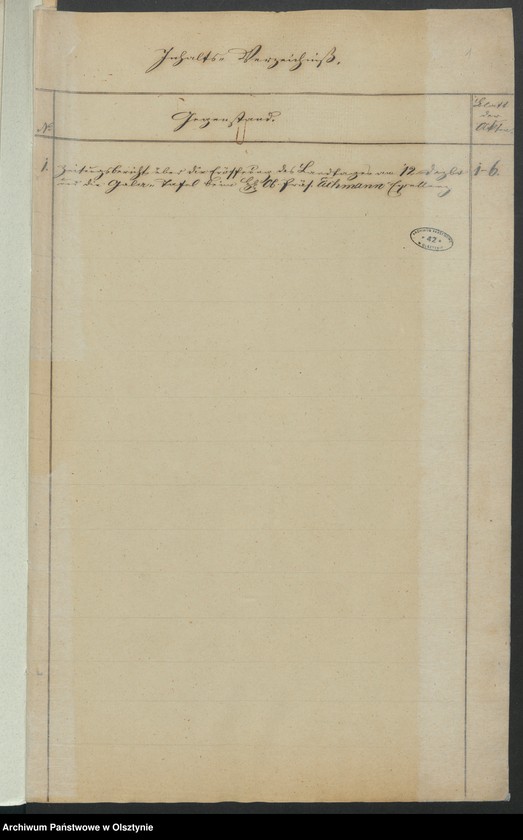 Inhalts-Verzeichniß.
№
Gegenstand.
Blatt
der
Akten
1.
Zeitungsbericht über die Eröffnung des Landtages am 12
1-6.
und die Tafel beim Präs. Excellenz
42
Archiwum Państwowe w Olsztynie